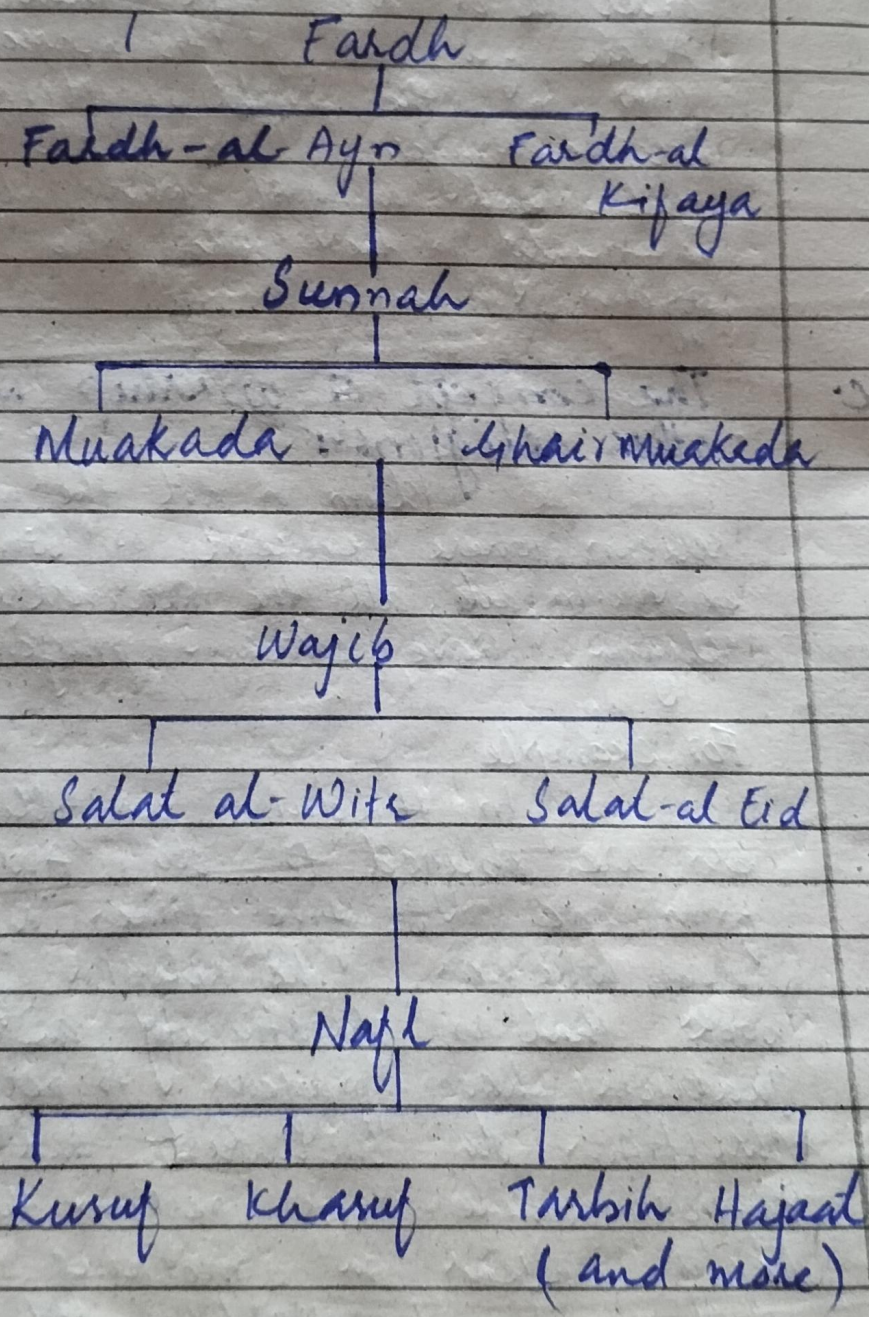 Fardh
Fardh-al-Ayn Fardh-al
Kifaya
Sunnah
Muakada Ghair Muakada
Wajib
Salat al-Witr Salal-al Eid
Nafl
Kusuf Khasuf Tasbih Hajaat
(and more)